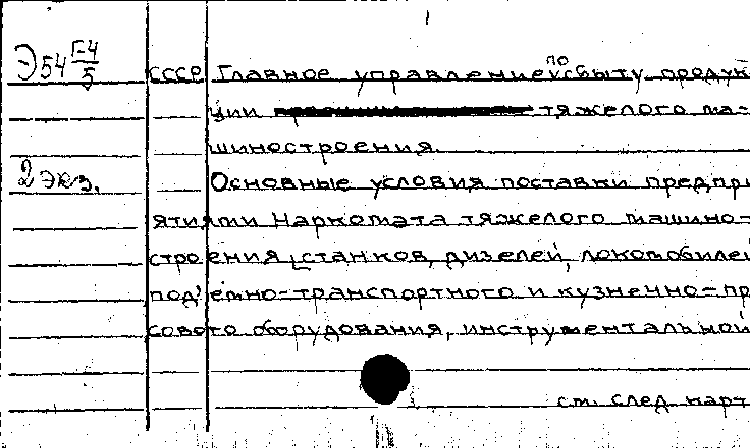 Э54 Г-4/5
СССР Главное управление по сбыту продук
ции тяжелого ма-
шиностроения.
2 экз. Основные условия поставки предпри
ятиями Наркомата тяжелого машино-
строения [станков, дизелей, локомобилей
под'емно-транспортного и кузнечно-пре
сового оборудования, инструментальной
см. след карт